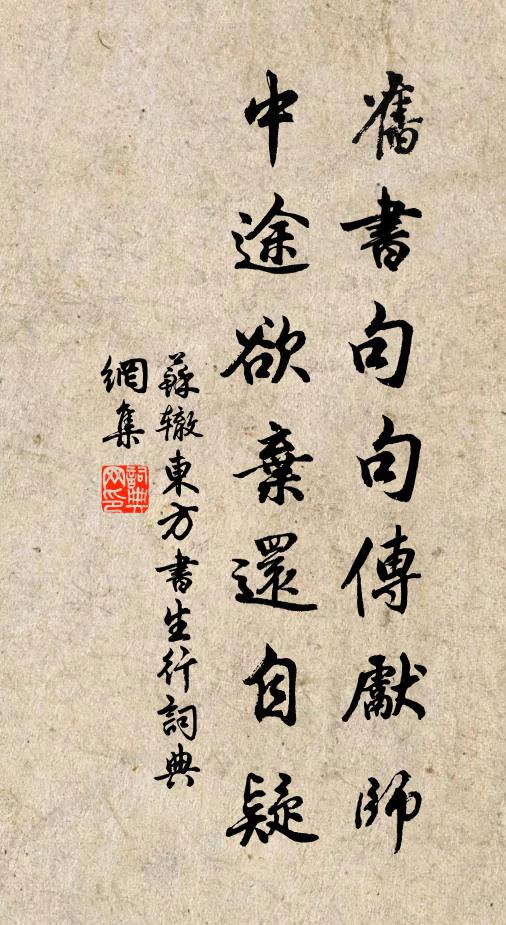 舊書句句傳獻師
中途欲棄還自疑
蘇辙東方書生行詞典
網集
詞典
网印